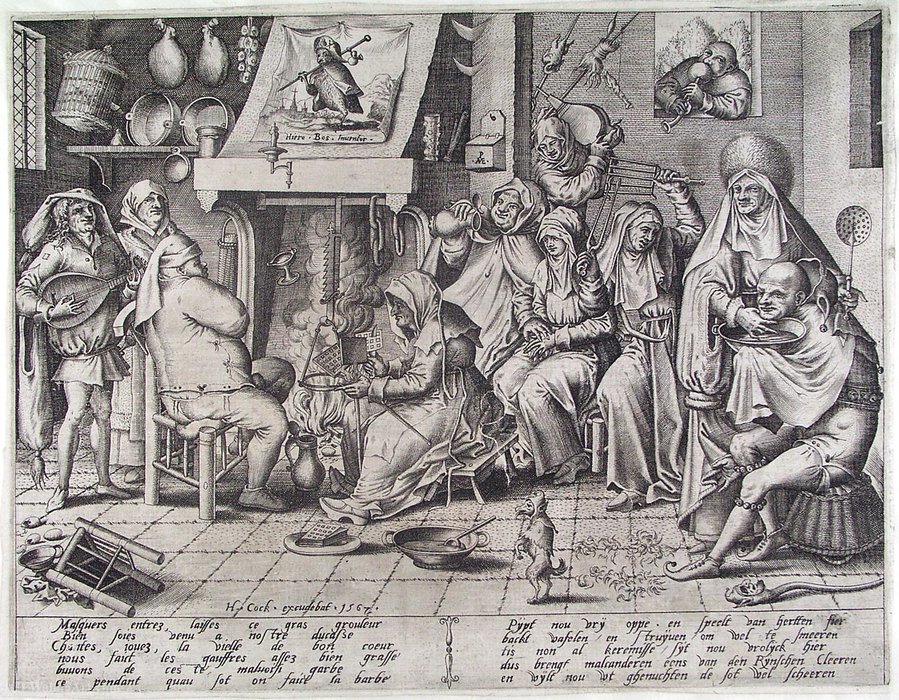 Hiero. Bos. Inuentor.
Æ.
H. Cock. excudebat. 1567.
Masquers entrez, laisses ce gras grouleur
Bien soies venu a nostre ducasse
Chātes, jouez, la vielle de bon coeur
nous fault les gauffres assez bien grasse
buuons de ces te maluoisi garbe
ce pendant quau sot on faict la barbe
Pypt nou vry oppe en speelt van hertten fier
backt vafelen en struyuen om wel te smeeren
tis non al keremisse syt nou vrolyck hier
dus brengt malcanderen eens van den Rynschen Cleeren
en wylt nou vvt ghenuchten de sot wel scheeren